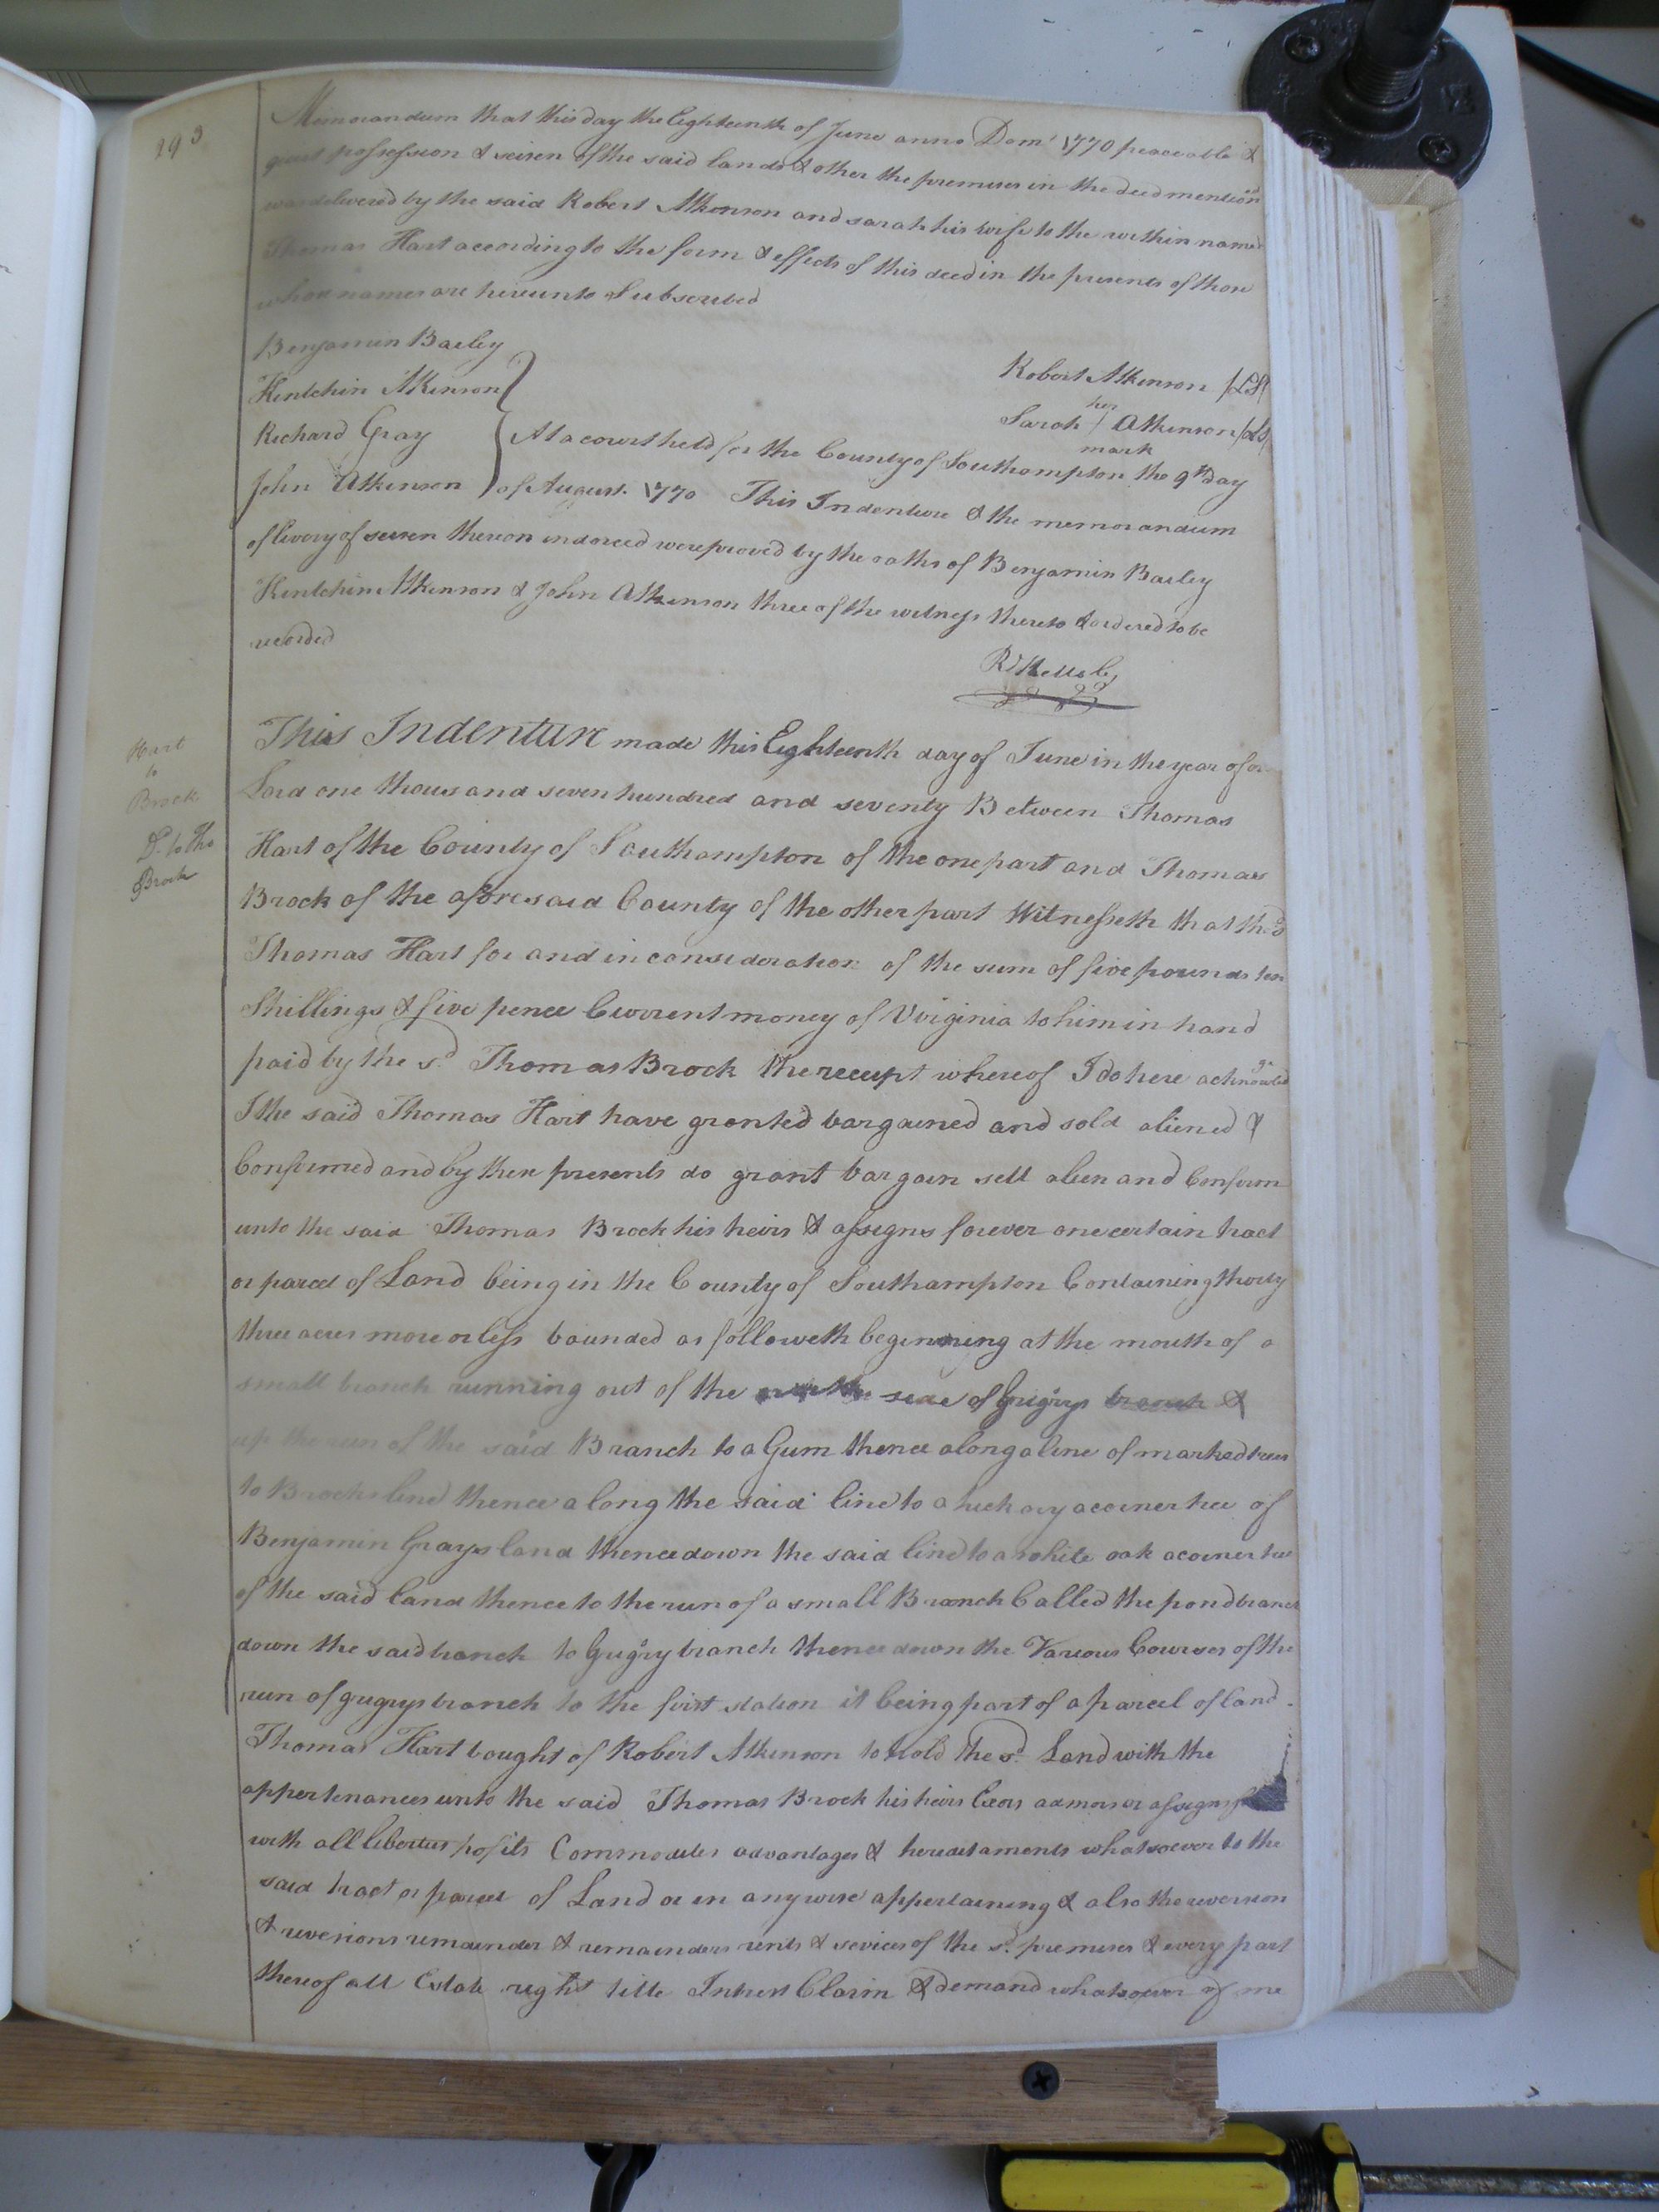 293
Memorandum that this day the Eighteenth of June anno Dom' 1770 peaceable &
quiet possession & seisen of the said lands & other the premises in the deed mention'd
was delivered by the said Robert Atkinson and sarah his wife to the within named
Thomas Hart according to the form & effects of this deed in the presents of those
whose names are hereunto Subscribed
Benjamin Bailey
Hentchin Atkinson
Richard Gray
John Atkinson
Robert Atkinson /LS/
Sarah her / mark Atkinson /LS/
At a court held for the County of Southampton the 9th day
of August 1770 This Indenture & the memorandum
of livery of seisen thereon indorced were proved by the oaths of Benjamin Bailey
Hentchin Atkinson & John Atkinson three of the witness thereto & ordered to be
recorded
R Kello C,
Hart
to
Brock
D. to Tho
Brock
This Indenture made this Eighteenth day of June in the year of our
Lord one thousand seven hundred and seventy Between Thomas
Hart of the County of Southampton of the one part and Thomas
Brock of the aforesaid County of the other part Witnesseth that the sd
Thomas Hart for and in consideration of the sum of five pounds ten
Shillings & five pence Current money of Virginia to him in hand
paid by the sd Thomas Brock the receipt whereof I do here acknowledge
I the said Thomas Hart have granted bargained and sold aliened &
Confirmed and by these presents do grant bargain sell alien and Confirm
unto the said Thomas Brock his heirs & assigns forever one certain tract
or parcel of Land being in the County of Southampton Containing thirty
three acres more or less bounded as followeth beginning at the mouth of a
small branch running out of the north side of Gugrys branch &
up the run of the said Branch to a Gum thence along a line of marked trees
to Brocks line thence along the said line to a hickory a corner tree of
Benjamin Grays land thence down the said line to a white oak a corner tree
of the said land thence to the run of a small Branch Called the pond branch
down the said branch to Gugry branch thence down the Various Courses of the
run of gugrys branch to the first station it being part of a parcel of land
Thomas Hart bought of Robert Atkinson to hold the sd Land with the
appertenances unto the said Thomas Brock his heirs Exors admors or assigns
with all liberties profits Commodites advantages & hereditaments whatsoever to the
said tract or parcel of Land or in any wise appertaining & also the reversion
& reversions remainder & remainders rents & sevices of the sd premises & every part
thereof all Estate right title Intrest Claim & demand whatsoever of me